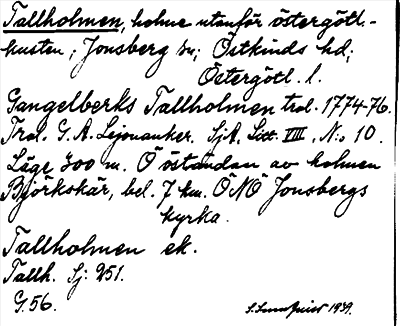 Tallholmen, holme utanför östergötl.-
kusten; Jonsberg sn; Östkinds hd;
Östergötl. l.
Gangelberks Tallholmen trol. 1774-76.
Trol. G. A. Lejonanker. SjA, Litt. VIII, N:o 10.
Läge 300 m. O östandan av holmen
Björkskär, bel. 7 km. ÖNÖ Jonsbergs
kyrka.
Tallholmen ek.
Tallh. Sj: 251.
G. 56.
1939.